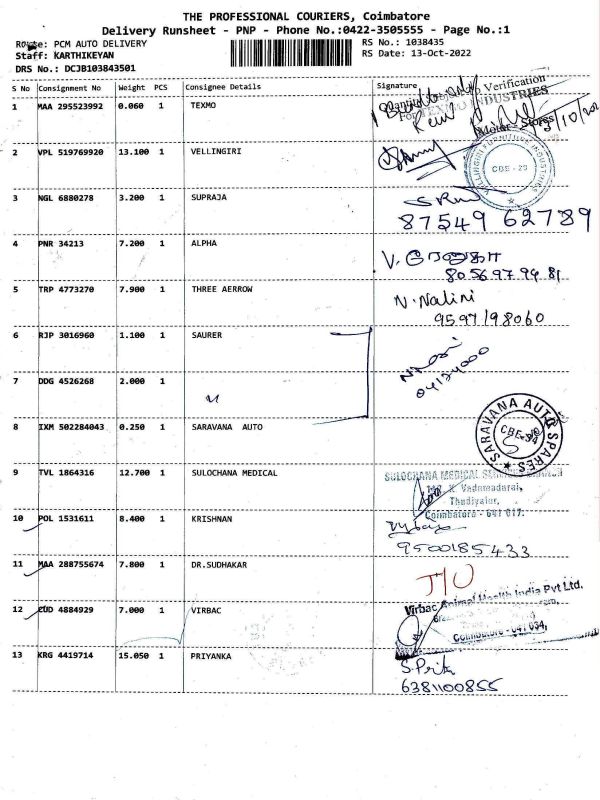 THE PROFESSIONAL COURIERS, Coimbatore
Delivery Runsheet - PNP - Phone No.:0422-3505555 - Page No.:1
Route: PCM AUTO DELIVERY
RS No.: 1038435
Staff: KARTHIKEYAN
RS Date: 13-Oct-2022
DRS No.: DCJB103843501
S No Consignment No Weight PCS Consignee Details Signature
1 MAA 295523992 0.060 1 TEXMO
Verification
For TEXMO INDUSTRIES
Motor - Stores
2 VPL 519769920 13.100 1 VELLINGIRI
VELLINGIRI FURNITURE INDUSTRIES
CBE - 29
3 NGL 6880278 3.200 1 SUPRAJA
87549 62789
4 PNR 34213 7.200 1 ALPHA
80 56 97 94 81
5 TRP 4773270 7.900 1 THREE AERROW
N. Nalini
9597198060
6 RJP 3016960 1.100 1 SAURER
7 DDG 4526268 2.000 1
8 IXM 502284043 0.250 1 SARAVANA AUTO
SARAVANA AUTO SPARES
9 TVL 1864316 12.700 1 SULOCHANA MEDICAL
SULOCHANA MEDICAL
Vadamadurai,
Thudiyalur,
Coimbatore - 641 017.
10 POL 1531611 8.400 1 KRISHNAN
9500185433
11 MAA 288755674 7.800 1 DR.SUDHAKAR
12 CUD 4884929 7.000 1 VIRBAC
Virbac Animal Health India Pvt Ltd.
Coimbatore - 641 034,
13 KRG 4419714 15.050 1 PRIYANKA
6381100855